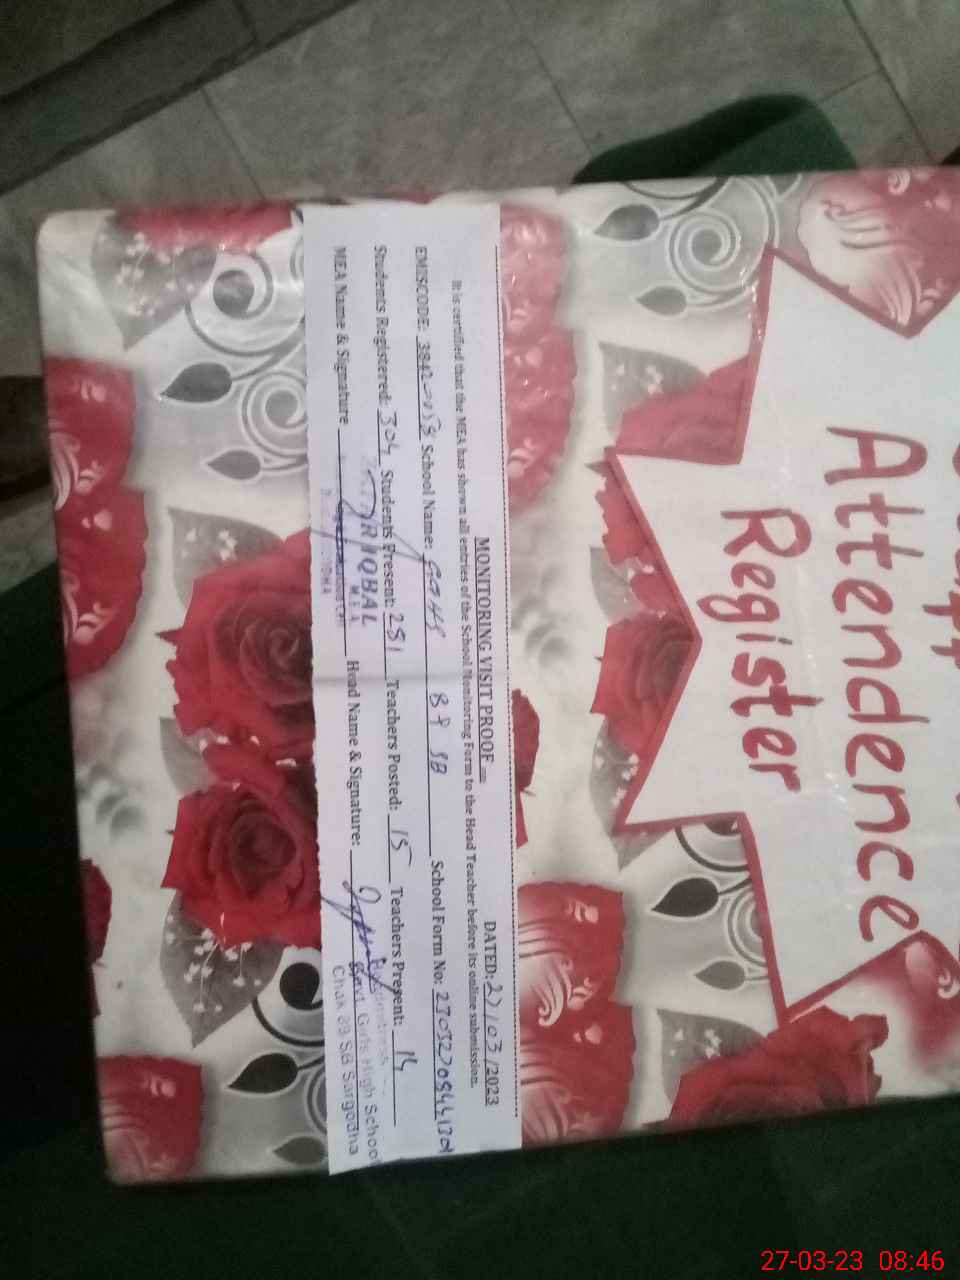 Attendence
Register
MONITORING VISIT PROOF
DATED: 27/03/2023
It is certified that the MEA has shown all entries of the School Monitoring Form to the Head Teacher before its online submission.
EMISCODE: School Name: GGHS 89 SB School Form No:
Students Registered: 304 Students Present: 281 Teachers Posted: 15 Teachers Present: 14
MEA Name & Signature Head Name & Signature:
IQBAL
M.E.A
Govt. Girls High School
Chak 89 SB Sargodha
27-03-23 08:46